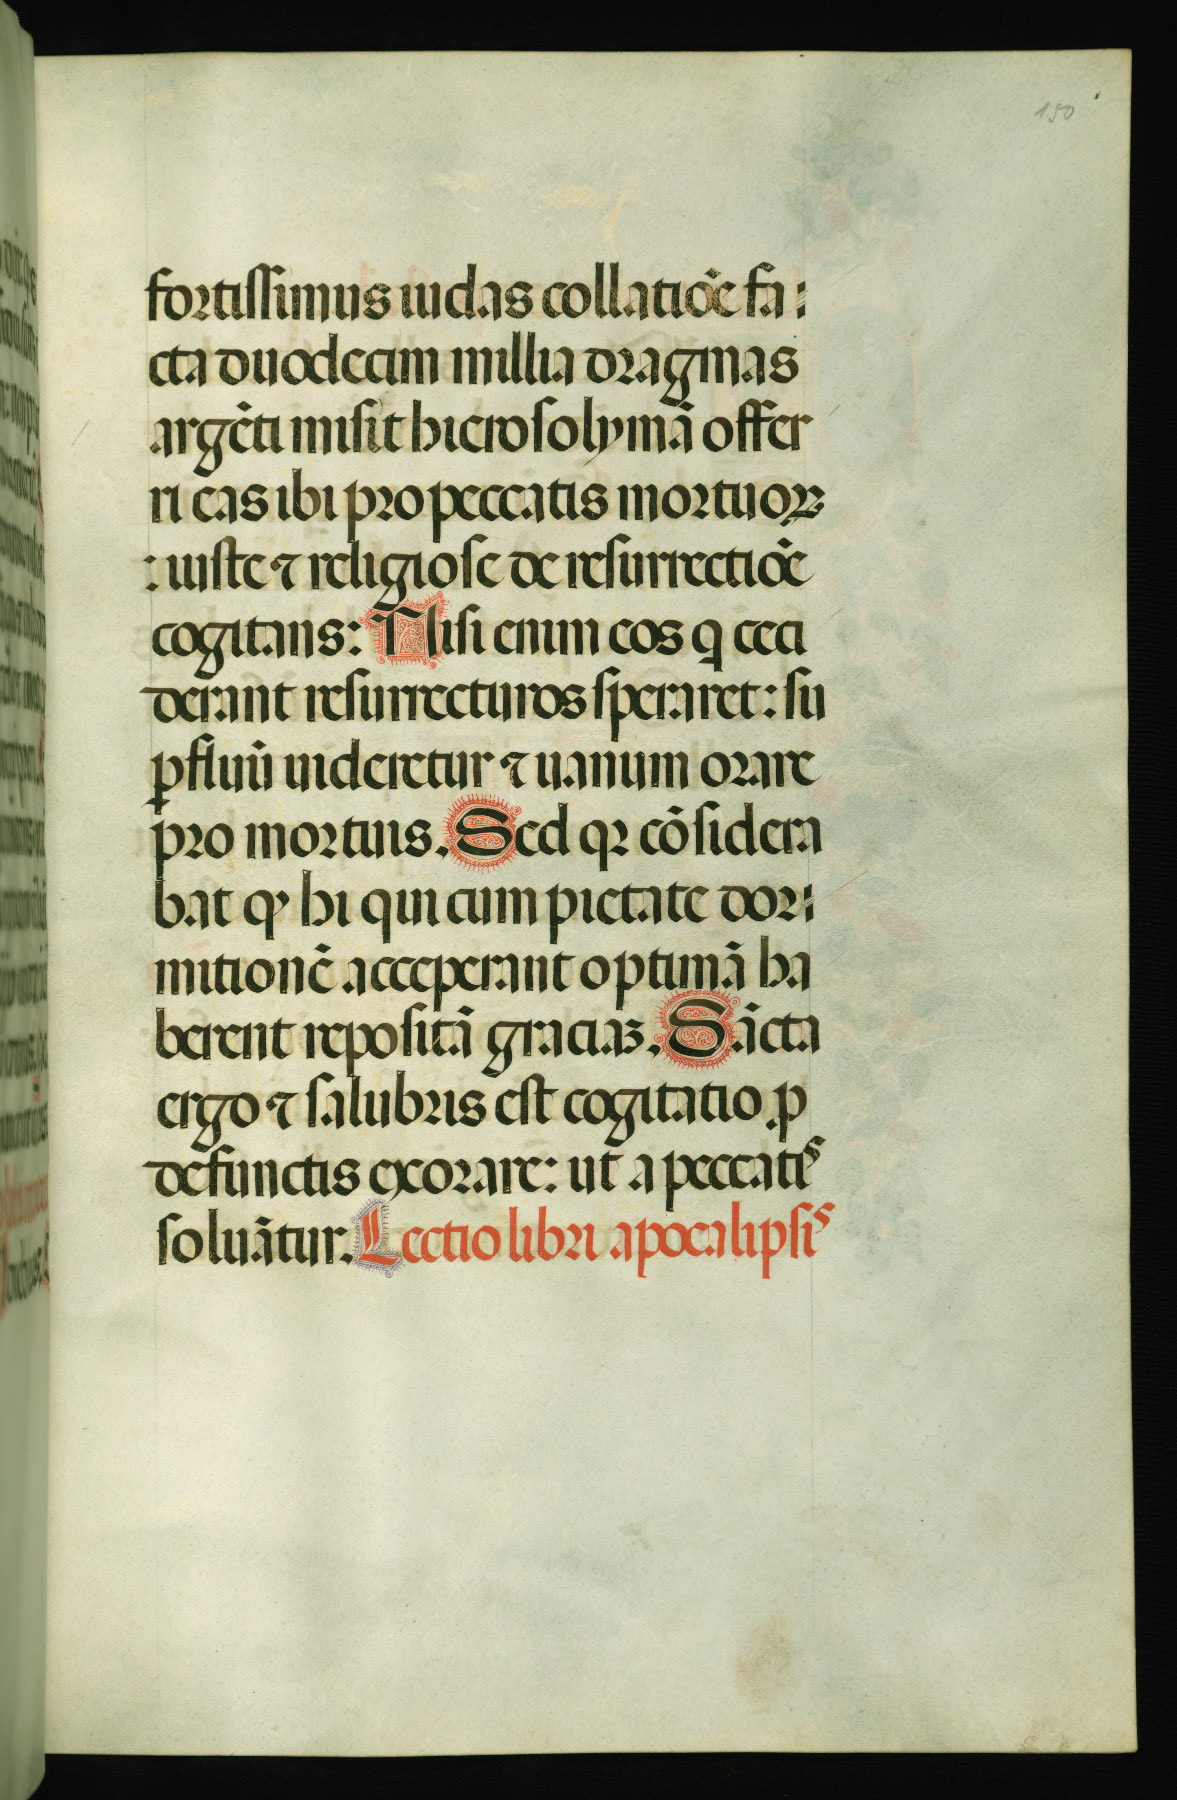 150
fortissimus iudas collatiōe fa:
cta duodecim millia dragmas
argēti misit hierosolymā offer
ri eas ibi pro peccatis mortuoꝝ
: iuste ⁊ religiose de resurrectiōe
cogitans: Nisi enim eos q ceci
derant resurrecturos speraret: su
ꝑfluū uideretur ⁊ uanum orare
pro mortuis. Sed qꝛ cōsidera
bat ꝙ hi qui cum pietate dor:
mitionē acceperant optimā ha
berent repositā graciaꝫ. Sācta
ergo ⁊ salubris est cogitatio ꝓ
defunctis exorare: ut a peccatis
soluātur. Lectio libri apocalipsis